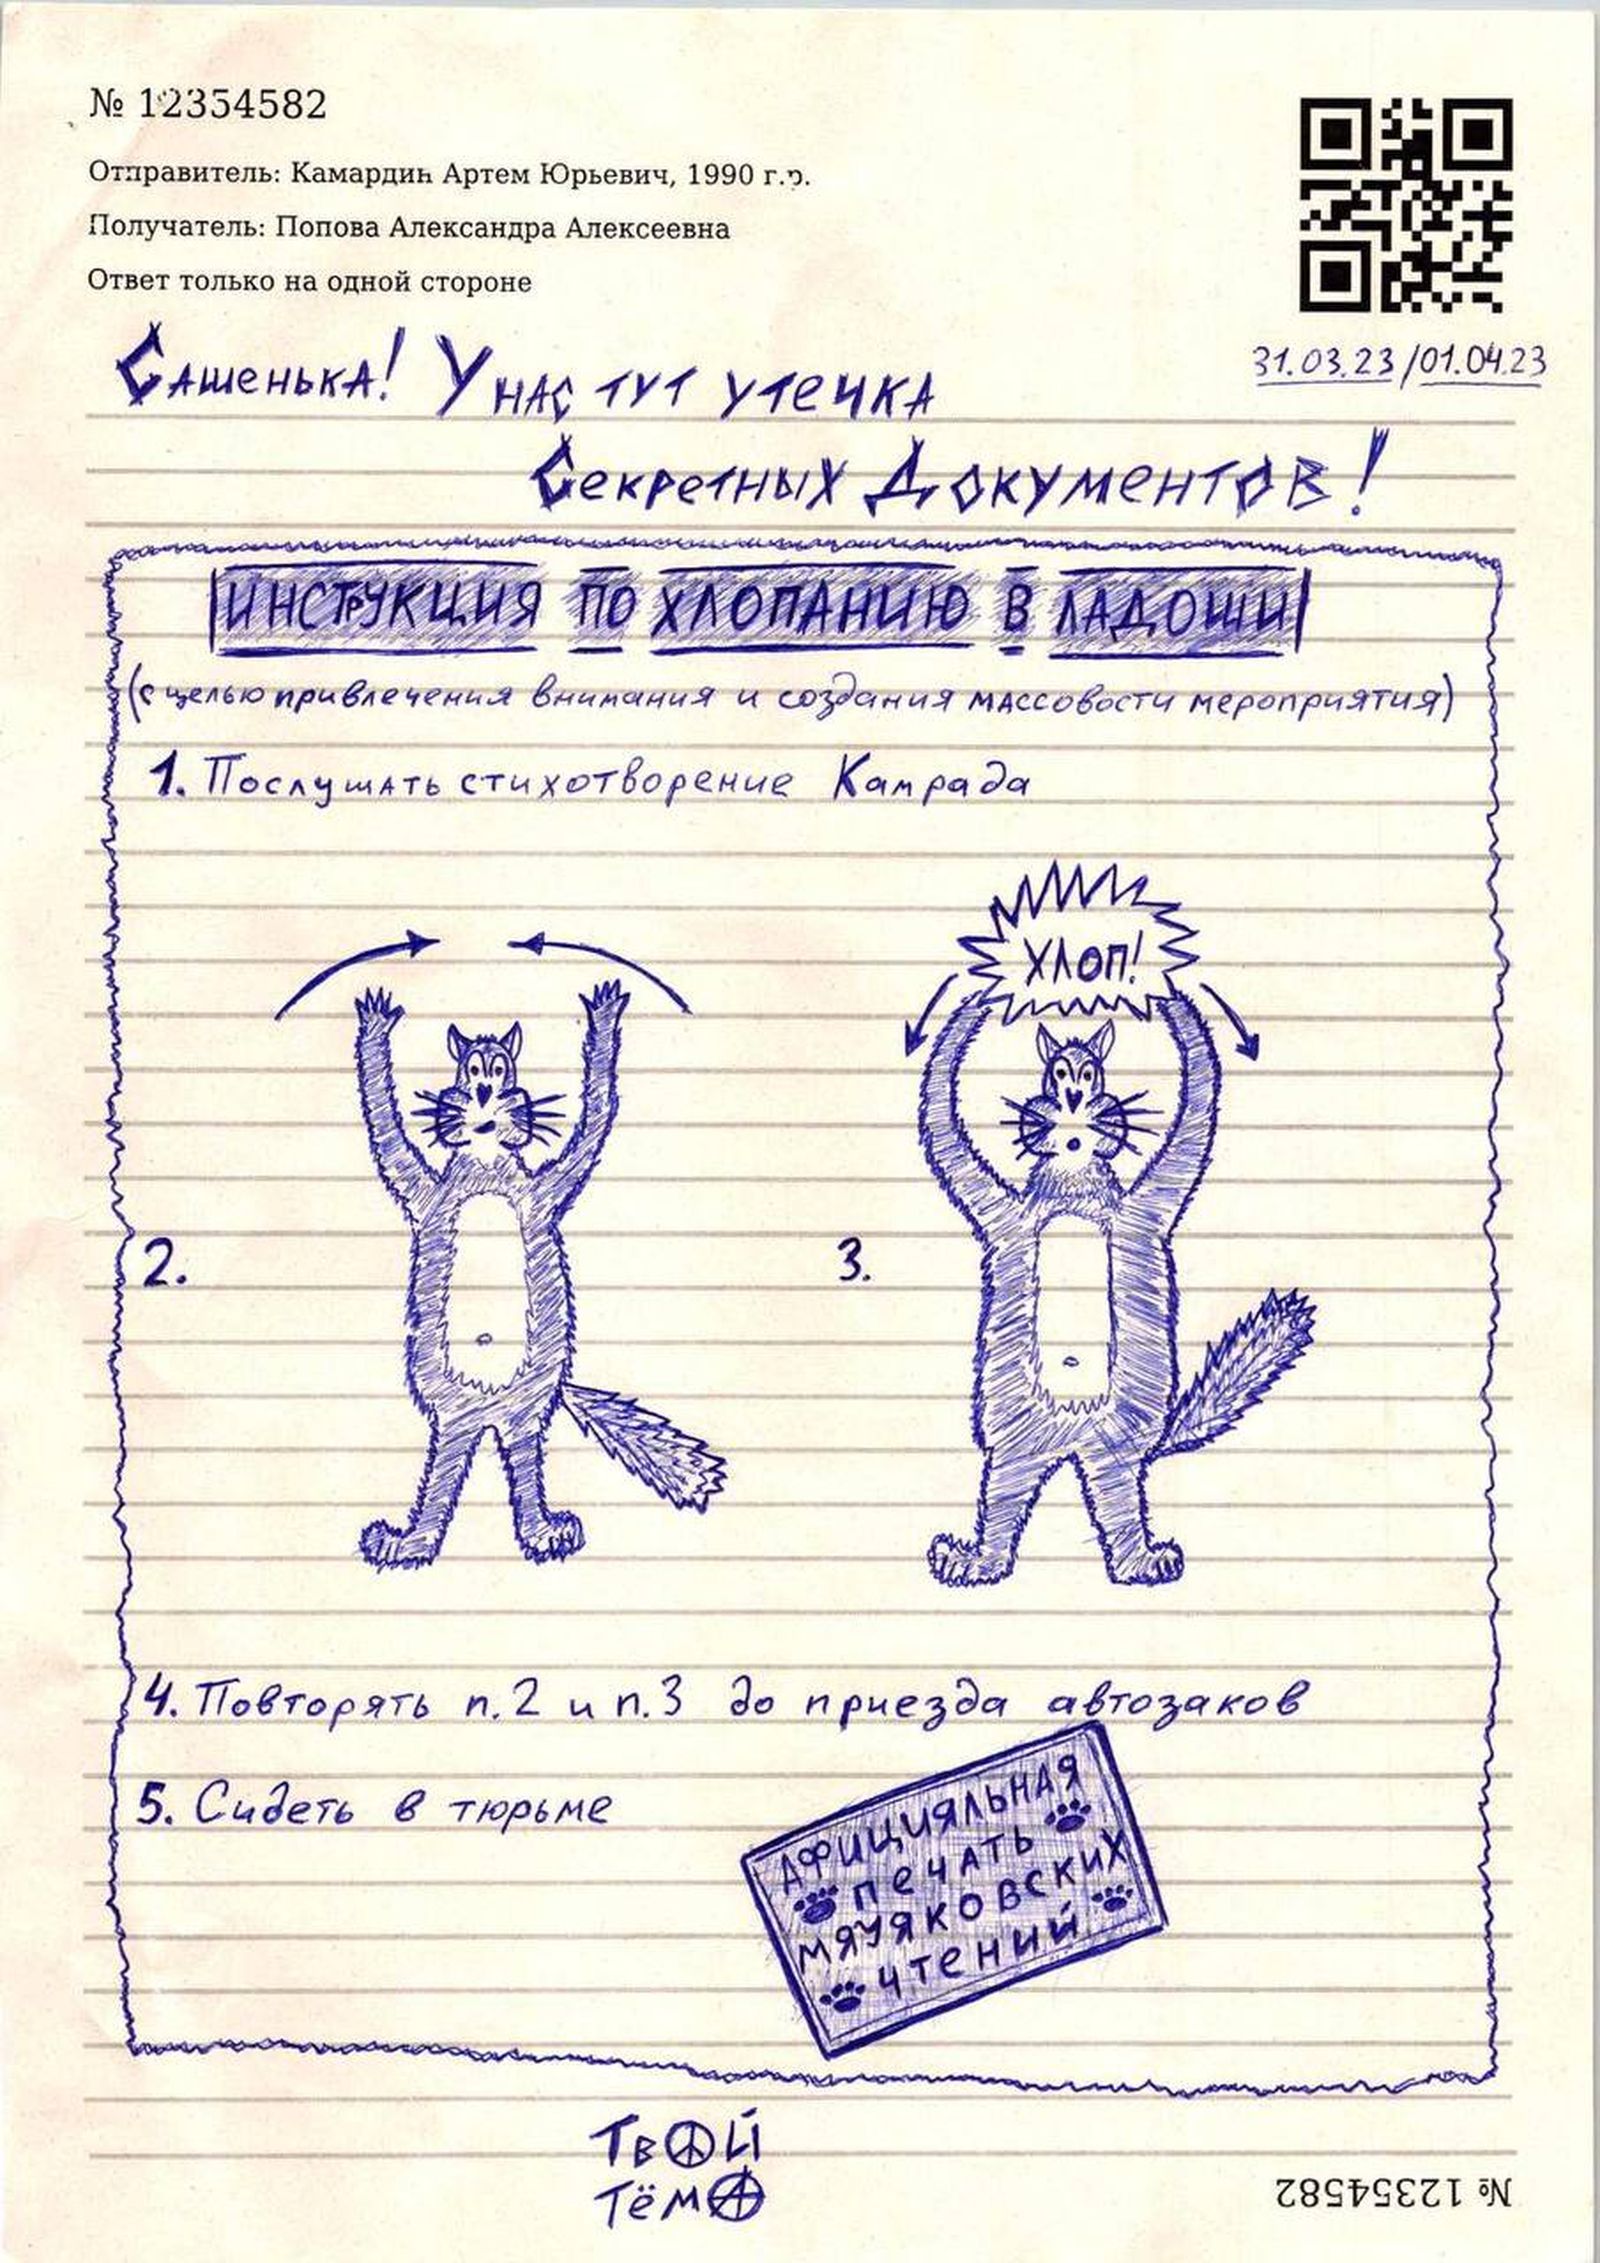 № 12354582
Отправитель: Камардин Артем Юрьевич, 1990 г.р.
Получатель: Попова Александра Алексеевна
Ответ только на одной стороне
31.03.23/01.04.23
Сашенька! У нас тут утечка
Секретных Документов!
ИНСТРУКЦИЯ ПО ХЛОПАНИЮ В ЛАДОШИ
(с целью привлечения внимания и создания массовости мероприятия)
1. Послушать стихотворение Камрада
ХЛОП!
2.
3.
4. Повторять п.2 и п.3 до приезда автозаков
5. Сидеть в тюрьме
АФИЦИЯЛЬНАЯ
ПЕЧАТЬ
МЯУЯКОВСКИХ
ЧТЕНИЙ
ТВОЙ
ТЁМА
№ 12354582